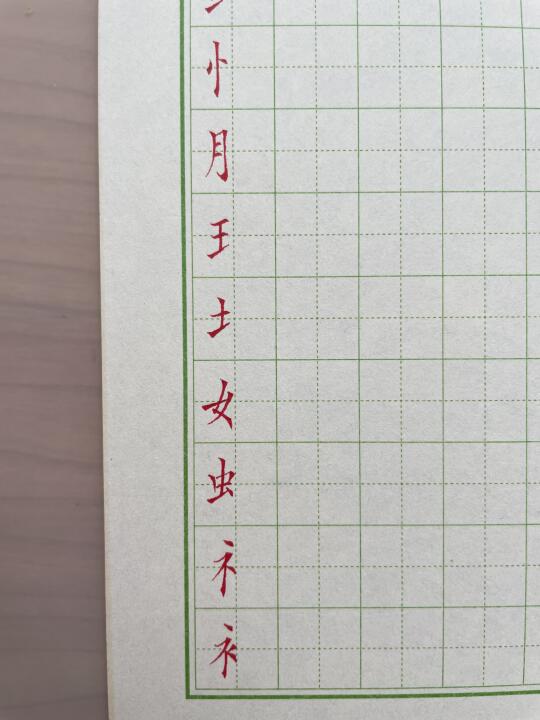 忄
月
王
土
女
虫
礻
衤